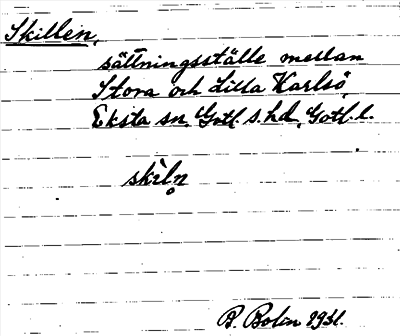 Skillen,
sättningsställe mellan
Stora och Lilla Karlsö,
Eksta sn, Gotl. s. hd, Gotl. l.
skìln̥
B. Bolin 1931.